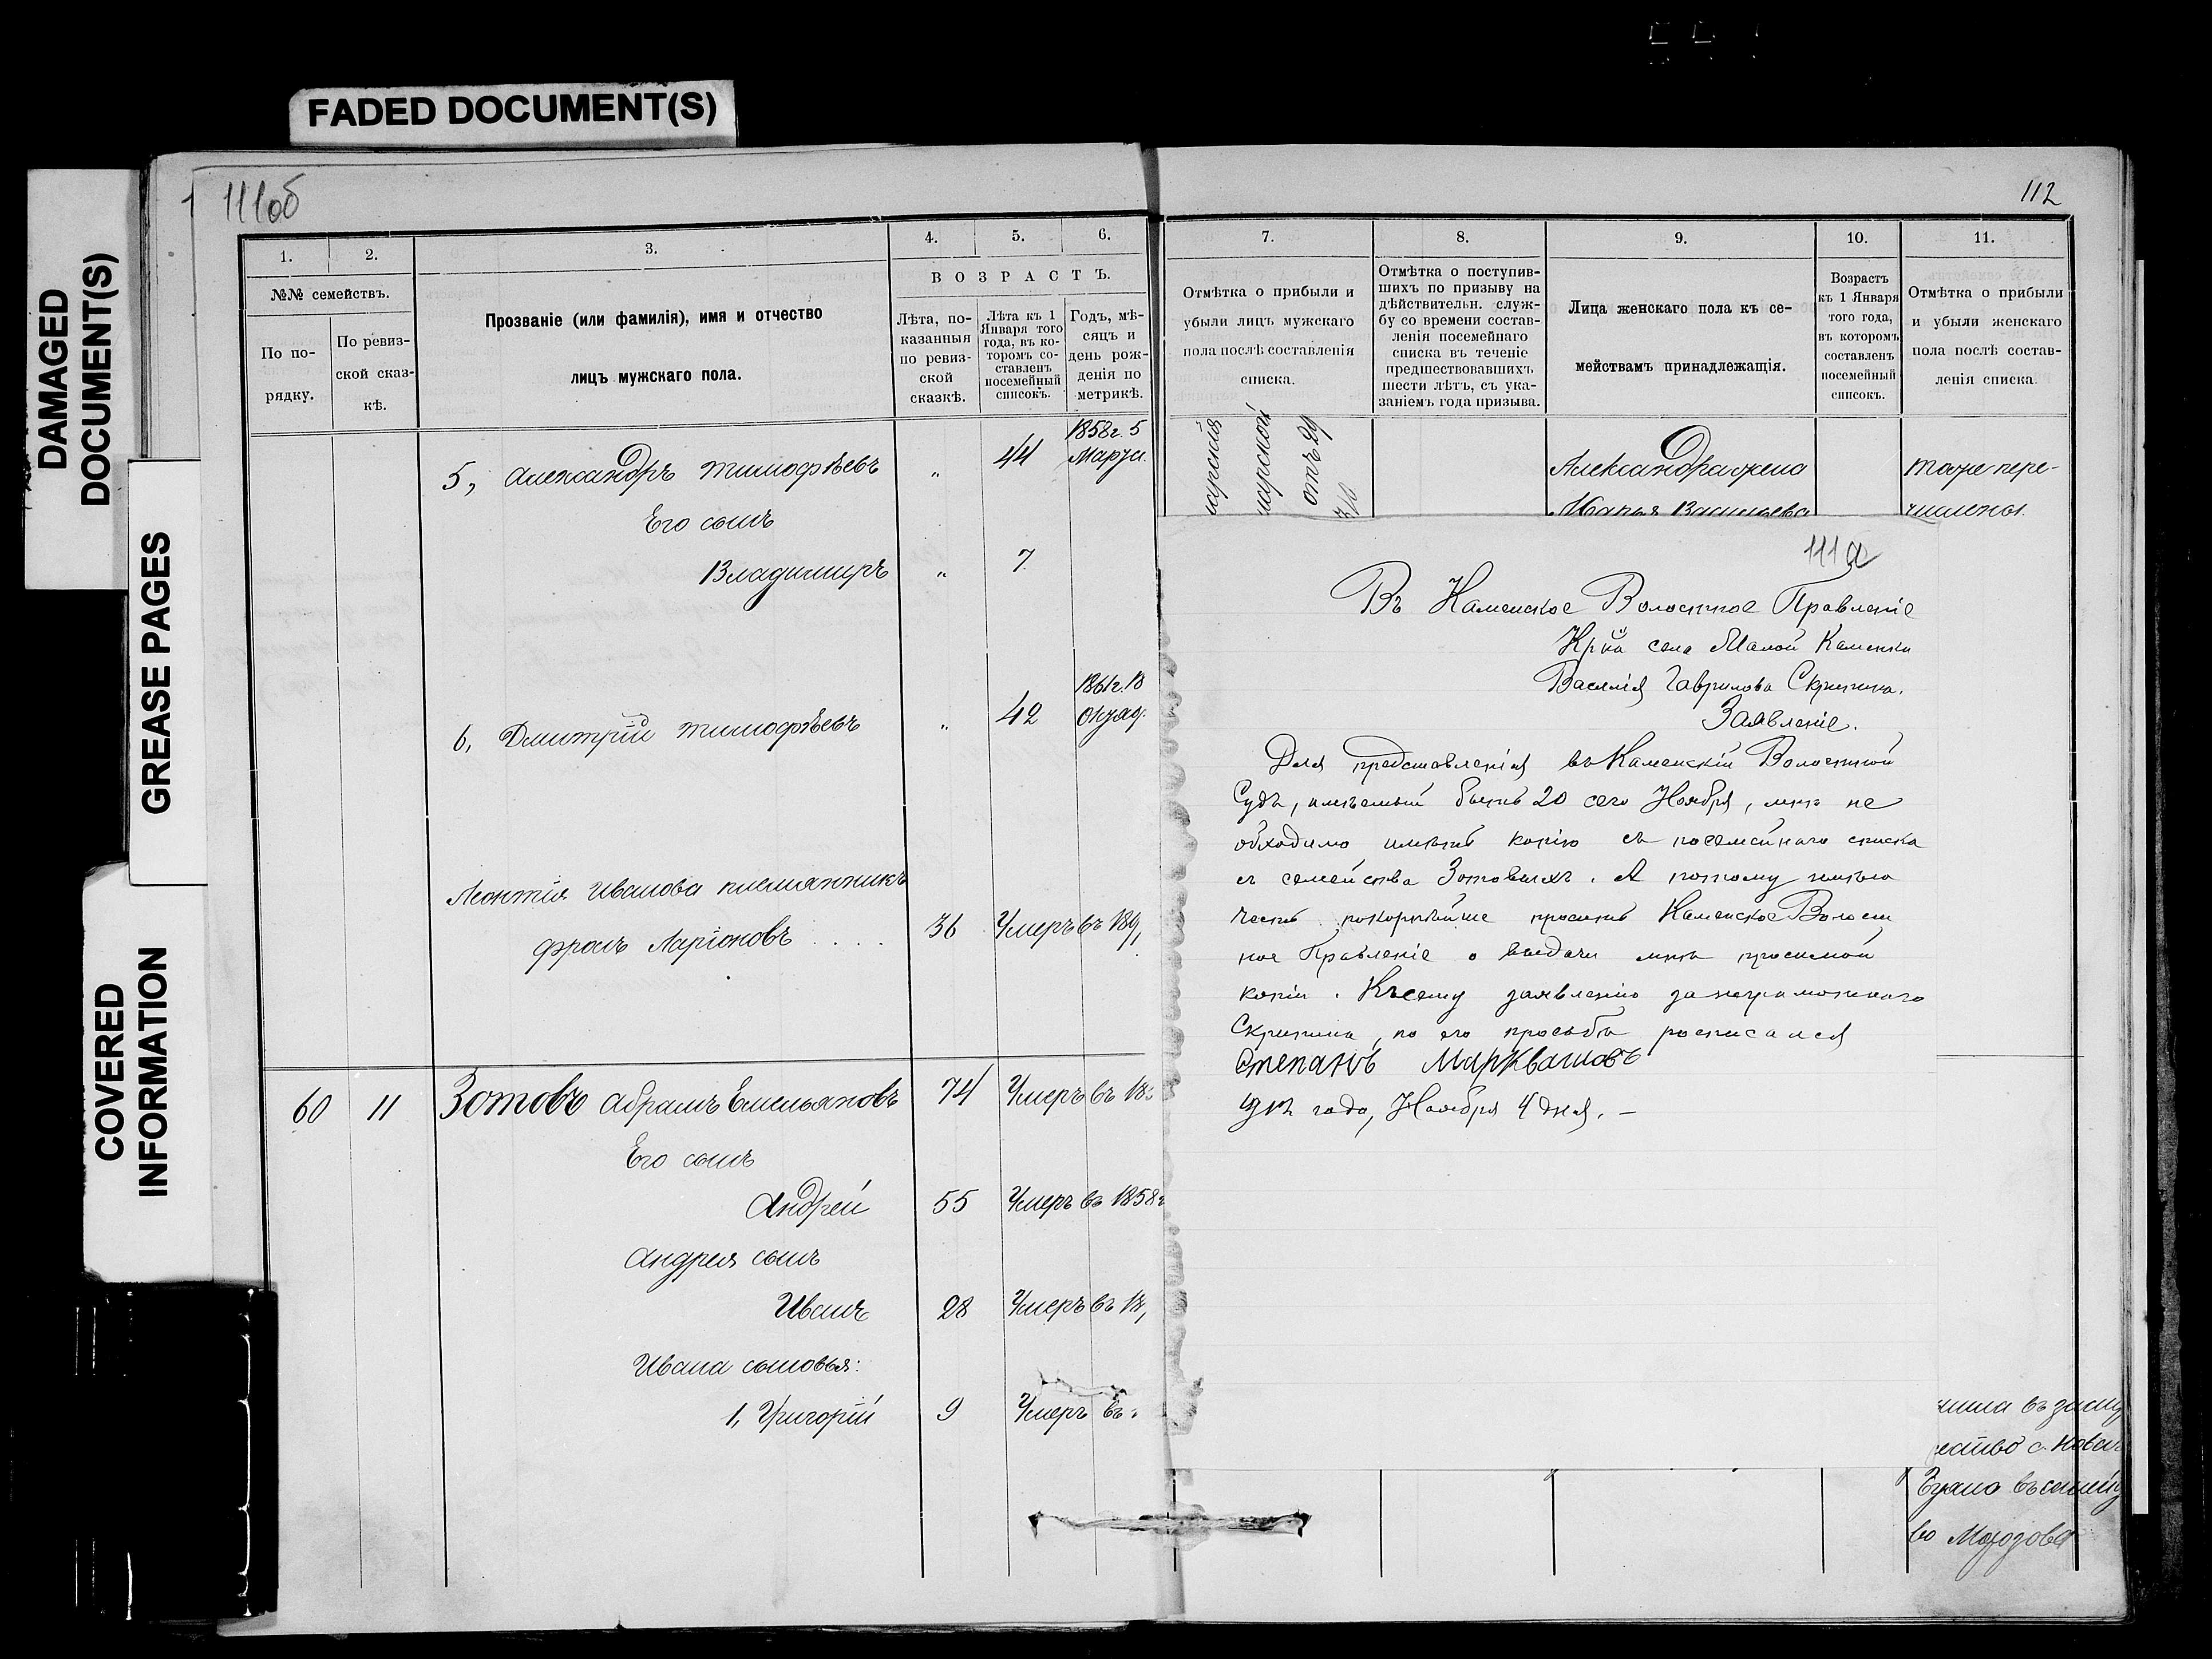 FADED DOCUMENT(S)
DAMAGED DOCUMENT(S)
GREASE PAGES
COVERED INFORMATION
111об
1.
2.
3.
4.
5.
6.
№№ семействъ.
По по-
рядку.
По ревиз-
ской сказ-
кѣ.
Прозваніе (или фамилія), имя и отчество
лицъ мужскаго пола.
ВОЗРАСТЪ.
Лѣта, по-
казанныя
по ревиз-
ской
сказкѣ.
Лѣта къ 1
Января того
года, въ ко-
торомъ со-
ставленъ
посемейный
списокъ.
Годъ, мѣ-
сяцъ и
день рож-
денія по
метрикѣ.
5, Александръ Тимофѣевъ " 44 1858г. 5 Марта
Его сынъ
Владимиръ " 7
6, Дмитрій Тимофѣевъ " 42 1861г. 18 Октяб.
Леонтія Иванова племянникъ
Фролъ Ларіоновъ .... 36 Умеръ въ 189
60 11 Зотовъ Абрамъ Емельяновъ 74 Умеръ въ 18
Его сынъ
Андрей 55 Умеръ въ 1858г
Андрея сынъ
Иванъ 28 Умеръ въ 18
Ивана сыновья:
1, Григорій 9 Умеръ въ
112
7.
8.
9.
10.
11.
Отмѣтка о прибыли и
убыли лицъ мужскаго
пола послѣ составленія
списка.
Отмѣтка о поступив-
шихъ по призыву на
дѣйствительн. служ-
бу со времени состав-
ленія посемейнаго
списка въ теченіе
предшествовавшихъ
шести лѣтъ, съ ука-
заніемъ года призыва.
Лица женскаго пола къ се-
мействамъ принадлежащія.
Возрастъ
къ 1 Января
того года,
въ которомъ
составленъ
посемейный
списокъ.
Отмѣтка о прибыли
и убыли женскаго
пола послѣ состав-
ленія списка.
отъ 29
Александра жена
Марья Васильева
тоже пере-
числены.
111а
Въ Каменское Волостное Правленіе
Кр на села Малой Каменки
Василія Гаврилова Скрипина.
Заявленіе.
Для представленія въ Каменскій Волостной
Судъ, имѣемый быть 20 сего Ноября, мнѣ не
обходимо имѣть копію съ посемейнаго списка
съ семейства Зотовыхъ. А потому имѣю
честь покорнѣйше просить Каменское Волост
ное Правленіе о выдачи мнѣ просимой
копіи. Къ сему заявленію за неграмотнаго
Скрипина, по его просьбѣ росписался
Степанъ Марквашовъ
1912 года, Ноября 4 дня. —
шла въ замуж
ество с. Новая
Бузано въ семейст
во Морозова